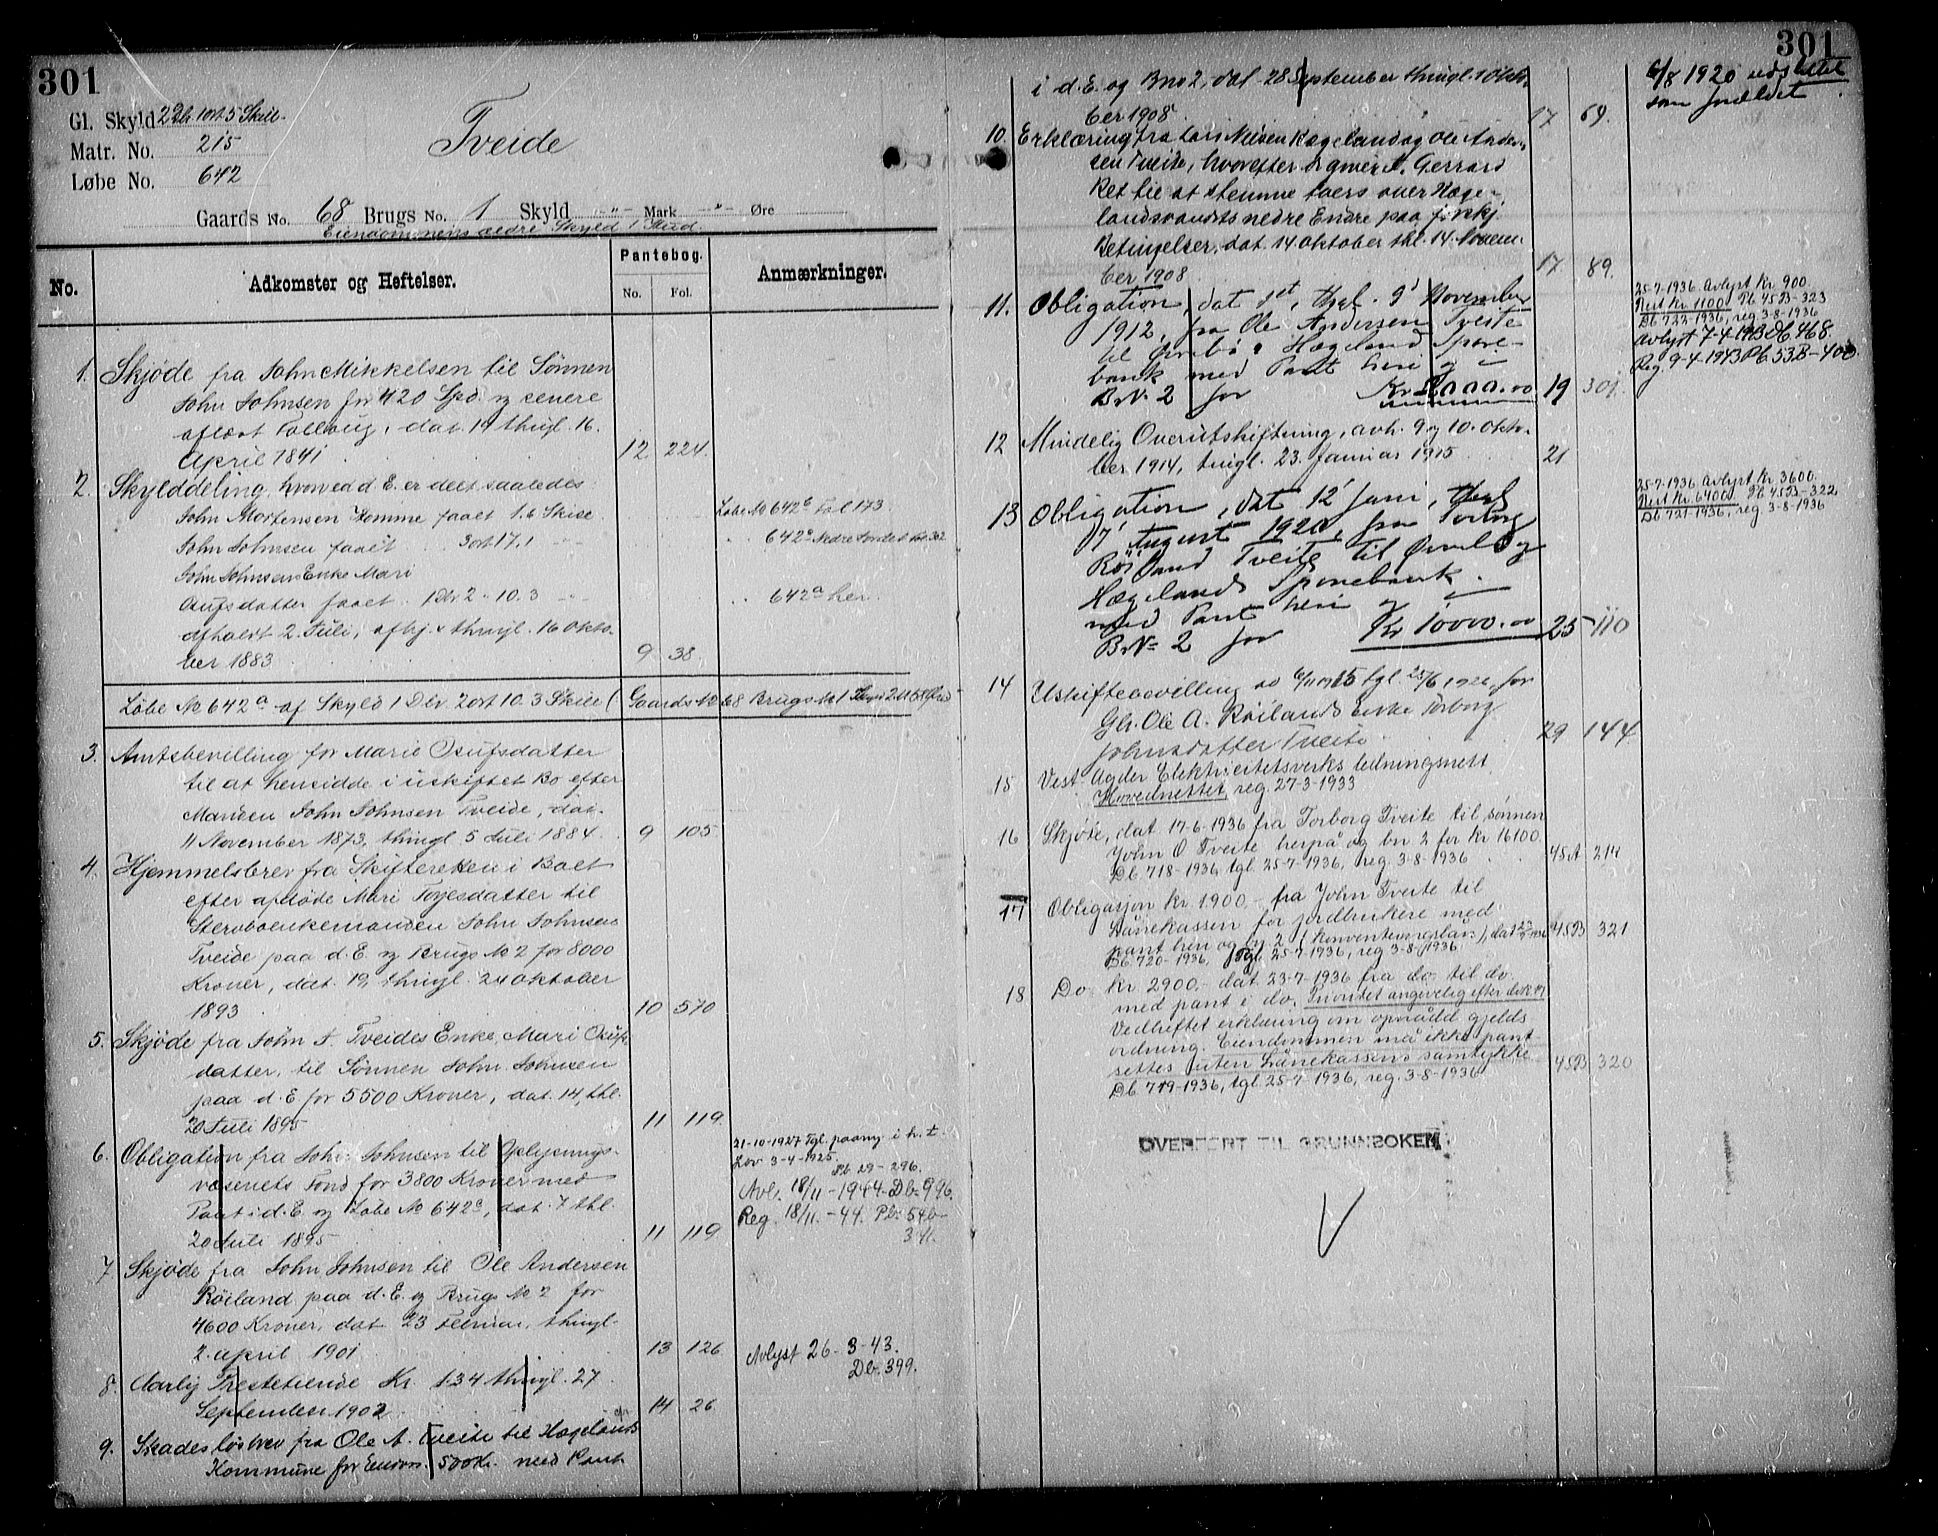 301
Gl. Skyld 2 Dlr 1 ort 5 Skill.
Matr. No. 215
Løbe No. 642
Tveide
Gaards No. 68 Brugs No. 1 Skyld „ Mark „ Øre
Eiendommens ældre Skyld 1 Hud.
No.
Adkomster og Heftelser.
Pantebog.
No. Fol.
Anmærkninger.
1. Skjøde fra John Mikkelsen til Sønnen
John Johnsen for 420 Spd. og senere
afløst Follaug, dat. 14 thingl. 16.
April 1841 12 224.
2. Skylddeling, hvorved d. E. er delt saaledes:
John Mortensen Homme faaet 1.6 Skill. Løbe No 642b Fol 173
John Johnsen faaet 3 ort 17.1 642c
John Johnsens Enke Mari
Osufsdatter faaet 1 Dlr. 2 „ 10.3 642a her.
afholdt 2. Juli, afhj. & thingl. 16 Okto-
ber 1883 9 38
Løbe No 642a af Skyld 1 Dlr. 2 ort 10.3 Skill (Gaards No 68 Brugs No 1
3. Amtsbevilling for Marie Osufsdatter
til at hensidde i uskiftet Bo efter
Manden John Johnsen Tveide, dat.
11 November 1873, thingl. 5 Juli 1884. 9 105
4. Hjemmelsbrev fra Skifteretten i Boet
efter afdøde Mari Togesdatter til
Stervboenkemanden John Johnsen
Tveide paa d. E. og Brugs No 2 for 8000
Kroner, dat. 19, thingl. 24 Oktober
1893 10 570
5. Skjøde fra John J. Tveides Enke, Mari Osufs-
datter, til Sønnen John Johnsen
paa d. E. for 5500 Kroner, dat. 14, thl.
20 Juli 1895 11 119.
6. Obligation fra John Johnsen til Oplysnings-
væsenets Fond for 3800 Kroner med
Pant i d. E. og Løbe No 642c, dat. 7 thl.
20 Juli 1895 11 119
21-10-1927 Tgl. paany i h.t.
Lov 3-4-1925.
Pb 29-296.
Avl. 18/11-1944. Db. 996.
Reg. 18/11.-44. Pb: 54b-
341.
7. Skjøde fra John Johnsen til Ole Andersen
Röiland paa d. E. og Brugs No 2 for
4600 Kroner, dat 23 Februar, thingl.
2. april 1901 13 126
8. Aarlig Prestetiende Kr. 1.34 thingl. 27.
September 1902 14 26
Avlyst 26-3-43.
Db. 399.
9. Skadesløsbrev fra Ole A. Tveite til Hægelands
Kommune for 500 Kr. med Pant
301
i d. E. og Bno 2, dat. 28 September thingl. 1 Okto-
ber 1908 17 69.
6/8 1920 udslettet
som forældet
10. Erklæring fra Lars Nilsen Hægeland og Ole Ander-
sen Tveite, hvorefter A. Gerrard
Ret til at stemme tvers over Hæge-
landsvandets nedre Ende paa forskj.
Betingelser, dat. 14 Oktober thl. 14. Novem-
ber 1908 17 89.
11. Obligation, dat 1st, thgl. 9' November
1912, fra Ole Andersen Tveite
til Øvrebø & Hægeland Spare-
bank med Pant heri og i
BrNo 2 for Kr 2000.00 19 301.
25-7-1936 avlyst Kr. 900.
Rest Kr 1100 Pb 45B-323
Db 722-1936, reg 3-8-1936
Avlyst 7-4-1943 Db. 468.
Reg. 9-4-1943 Pb. 53B-400
12 Mindelig Overutskiftning, avh. 9 og 10. Okto-
ber 1914, tingl. 23. Januar 1915 21
13 Obligation, dat 12' Juni, thgl
7' August 1920, fra Torborg
Röiland Tveite til Øvrebø og
Hægelands Sparebank
med Pant heri og i
BrNo 2 for Kr 10000.00 25 110
25-7-1936 Avlyst Kr. 3600.
Rest Kr. 6400 Pb 45B-322
Db 721-1936, reg 3-8-1936
14 Uskiftebevilling av 6/11 1925 tgl. 25/6 1926, for
Gbr. Ole A. Röilands Enke Torborg
Johnsdatter Tveite 29 144
15 Vest-Agder Elektricitetsverks ledningsnett
Hovednettet, reg. 27-3-1933
16 Skjøte, dat 17-6-1936 fra Torborg Tveite til sønnen
John O Tveite herpå og bn 2 for kr 16100.
Db 718-1936 tgl. 25-7-1936, reg 3-8-1936 45A 214
17 Obligasjon kr 1.900,- fra John Tveite til
Lånekassen for jordbrukere med
pant heri og bn 2 (Konverteringslån), dat 45B 321
Db 720-1936, tgl. 25-7-1936, reg 3-8-1936
18 Do. kr 2900.- dat 23-7-1936 fra do. til do.
med pant i do. Prioritet angivelig efter dok 17
Vedheftet erklæring om opnådd gjelds
ordning. Eiendommen må ikke pant-
settes uten Lånekassens samtykke
Db 719-1936, tgl 25-7-1936, reg. 3-8-1936 45B 320
OVERFØRT TIL GRUNNBOKEN